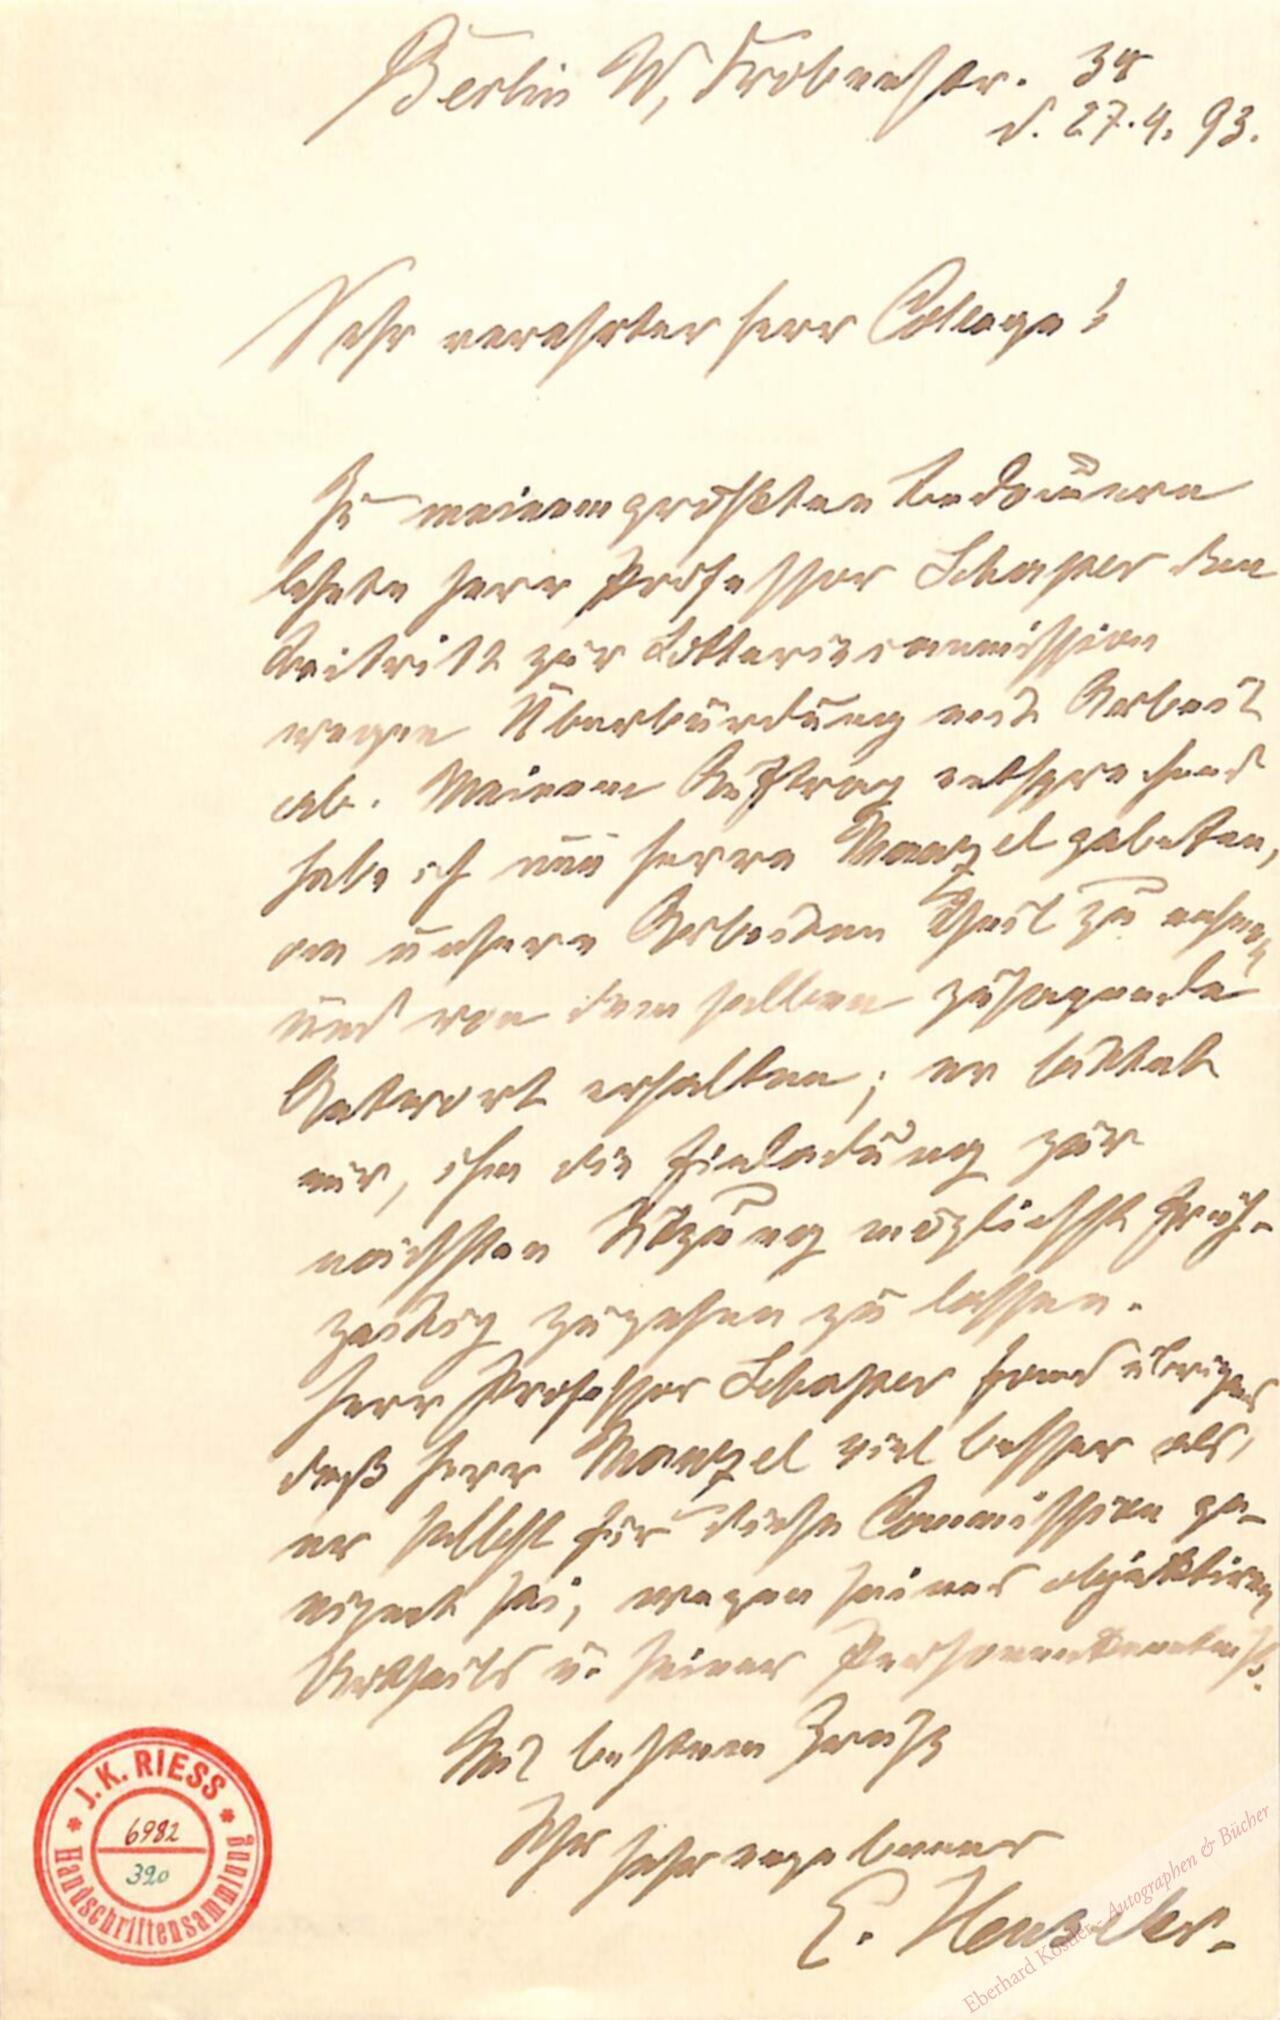 Berlin W, Frobenstr. 34
d. 27.4.93.
Sehr verehrter Herr College!
Zu meinem größten Bedauern
lehnte Herr Professor Schaper den
Beitritt zur Lotteriecommission
wegen Überbürdung mit Arbeit
ab. Meinem Auftrag entsprechend
habe ich nun Herrn Manzel gebeten,
an unseren Arbeiten Theil zu nehmen
und von demselben zusagende
Antwort erhalten; er bittet
mir, ihm die Einladung zur
nächsten Sitzung möglichst früh-
zeitig zugehen zu lassen.
Herr Professor Schaper fand übrigens
daß Herr Manzel viel besser als,
er selbst für diese Commission ge-
eignet sei, wegen seines objektiven
Urtheils u. seiner Personenkenntniß.
Mit bestem Gruß
Ihr sehr ergebener
E. Henseler.
J. K. RIESS
6982
390
Handschriftensammlung
Eberhard Köstler - Autographen & Bücher